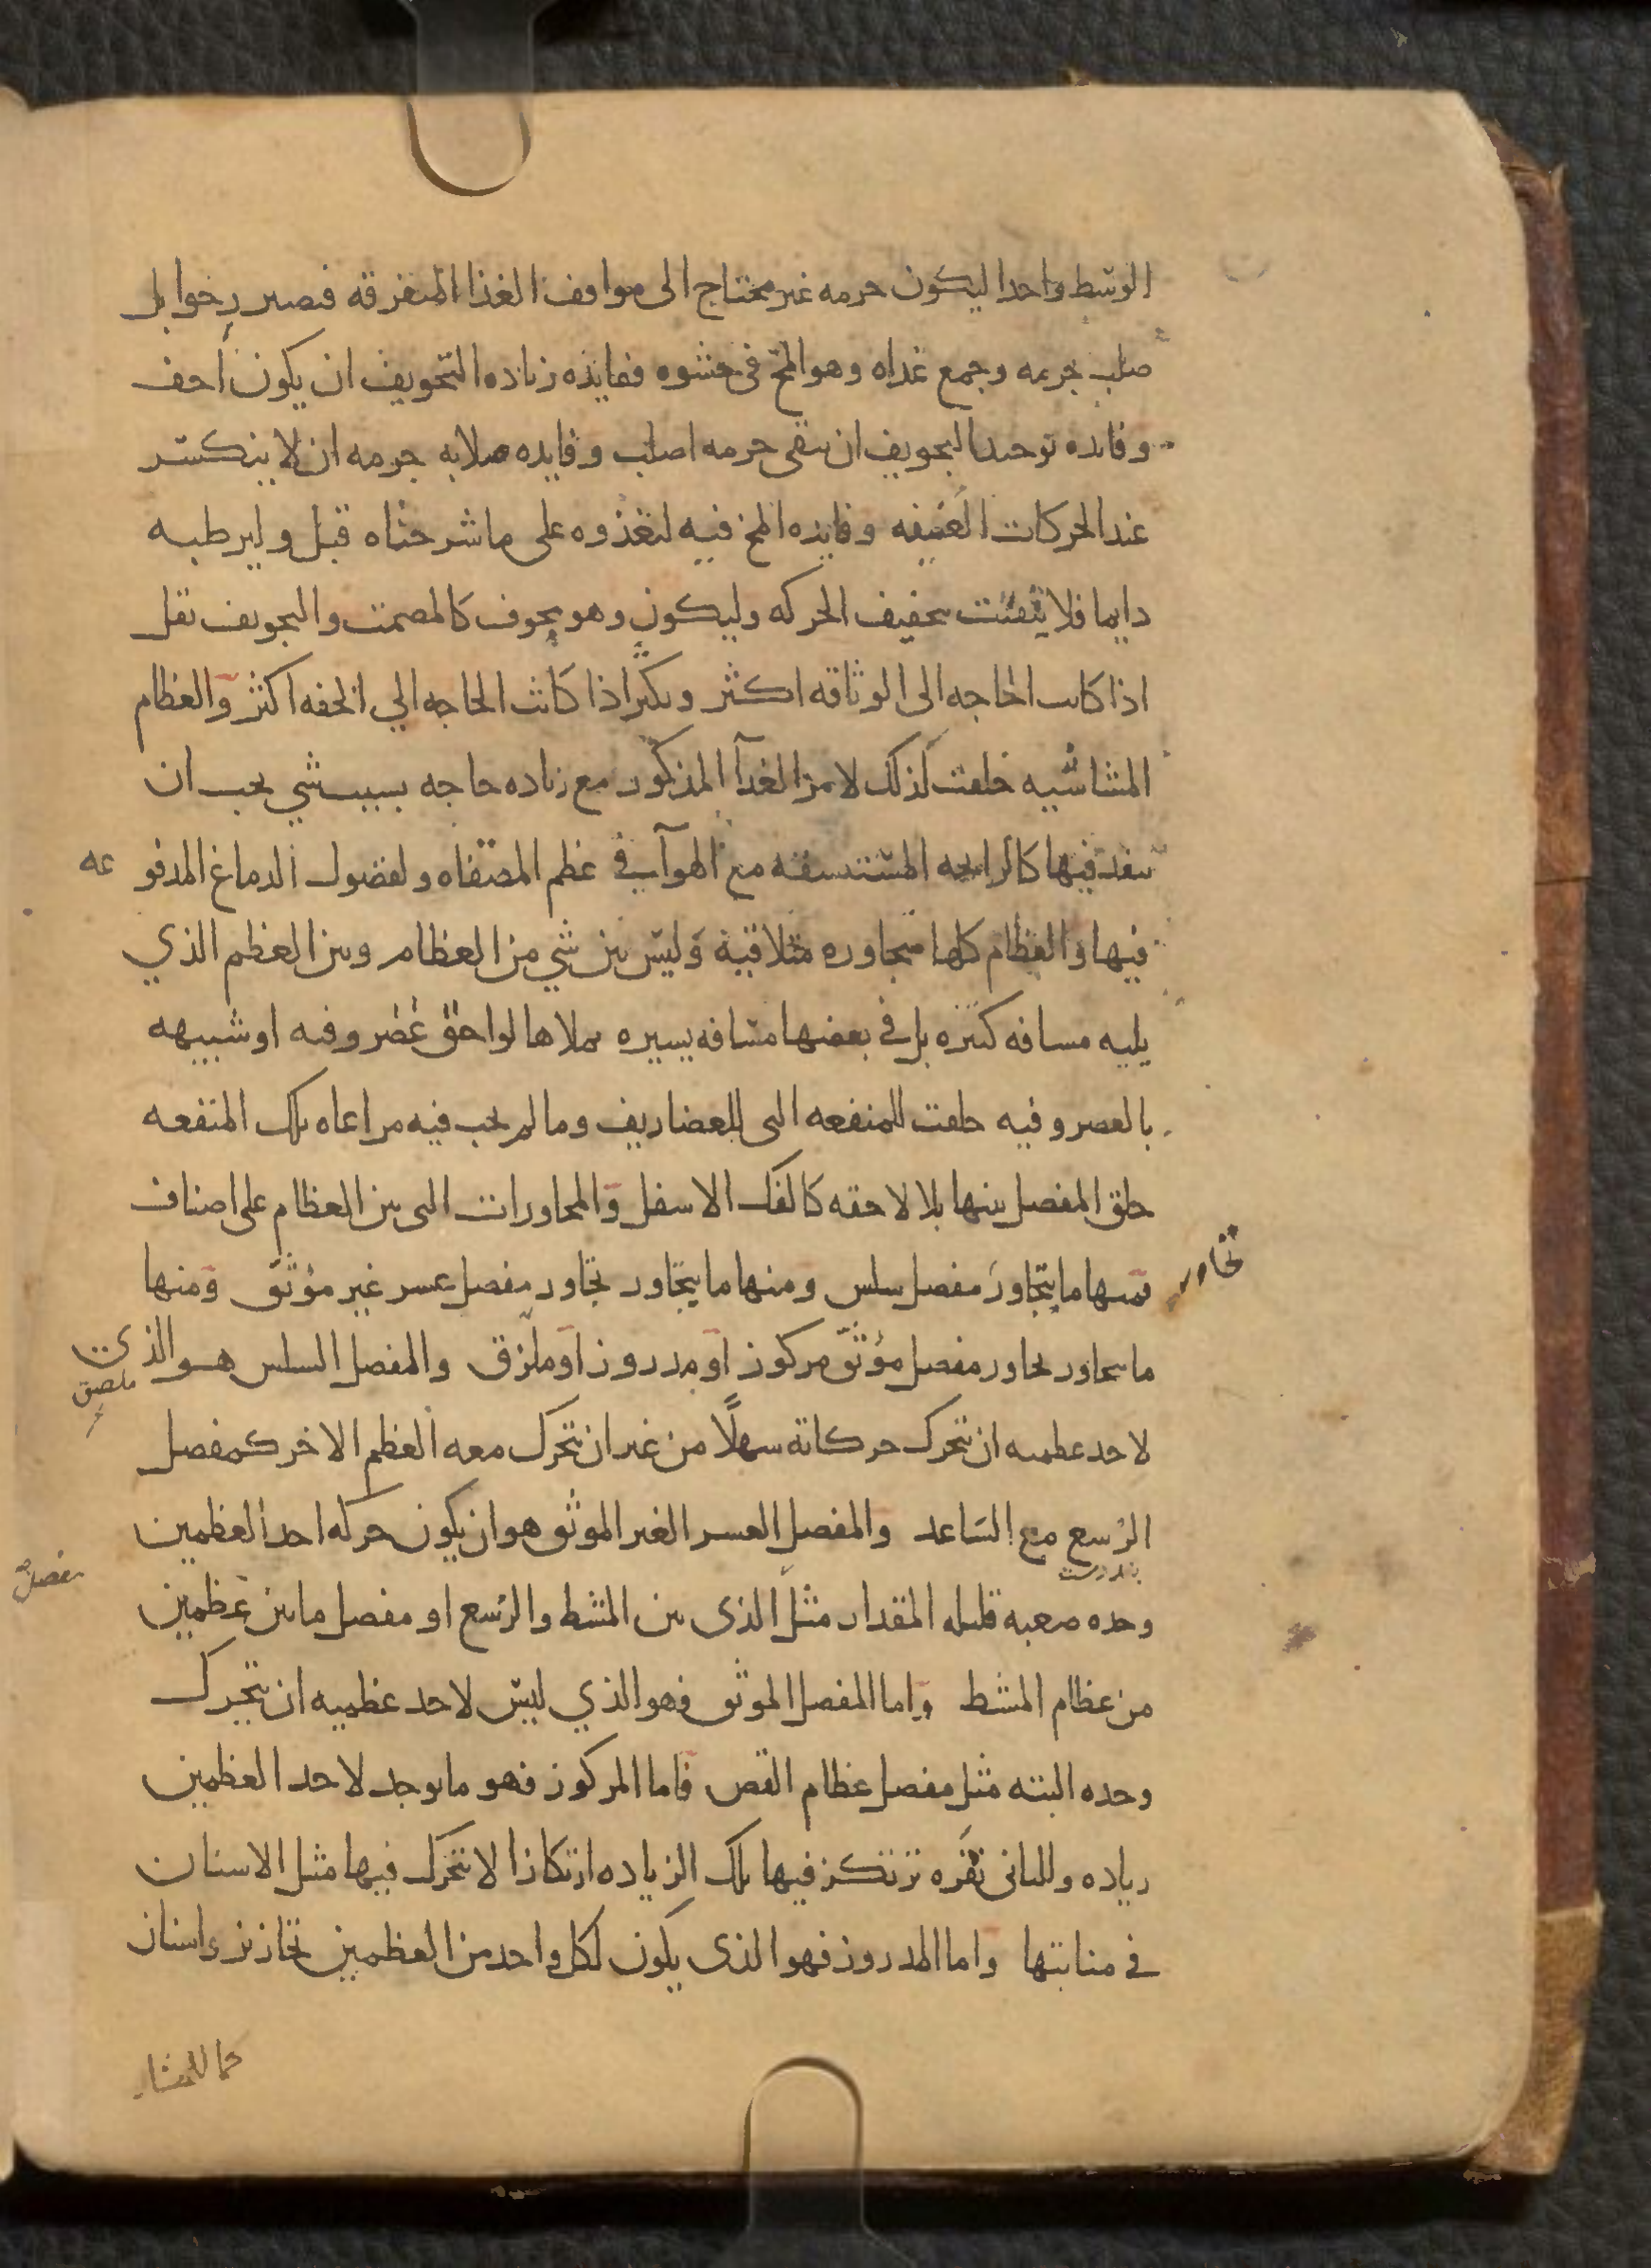 الوسط واحدا ليكون جرمه غير محتاج الى مواقف الغذا المتفرقه فيصير رخوا بل
صلب جرمه وجمع غداه وهو المخ في حشوه ففايده زياده التجويف ان يكون أخف
وفايده توحيد التجويف ان يبقى جرمه اصلب وفايده صلابه جرمه ان لا ينكسر
عند الحركات العنيفه وفايده المخ فيه ليغذوه على ما شرحناه قبل وليرطبه
دايما فلا يتفتت بتجفيف الحركه وليكون وهو مجوف كالمصمت والتجويف يقل
اذا كانت الحاجه الى الوثاقه اكثر ويكثر اذا كانت الحاجه الي الخفه اكثر والعظام
المشاشيه خلقت كذلك لامر الغدآ المذكور مع زياده حاجه بسبب شي يجب ان
ينفد فيها كالرايحه المستنسقه مع الهوآ في عظم المصفاه ولفضول الدماغ المدفوعه
فيها والعظام كلها متجاوره متلاقية وليس بين شي من العظام وبين العظم الذي
يليه مسافه كثيره بل في بعضها مسافه يسيره يملاها لواحق غضروفيه او شبيهه
بالغضروفيه خلقت للمنفعه التى للغضاريف وما لم يجب فيه مراعاه تلك المنفعه
خلق المفصل بينها بلا لاحقه كالفك الاسفل والمجاورات التى بين العظام على اصناف
فمنها ما يتجاور مفصل سلس ومنها ما يتجاور تجاور مفصل عسر غير موثق ومنها
تجاور
ما يتجاور تجاور مفصل موثق مركوز او مدروز او ملزق والمفصل السلس هو الذي
ملصق
لاحد عظميه ان يتحرك حركاته سهلًا من غير ان يتحرك معه العظم الاخر كمفصل
الرسغ مع الساعد والمفصل العسر الغير الموثق هو ان يكون حركه احد العظمين
وحده صعبه قليله المقدار مثل الذى بين المشط والرسغ او مفصل ما بين عظمين
مفصل
من عظام المشط واما المفصل الموثق فهو الذي ليس لاحد عظميه ان يتحرك
وحده البته مثل مفصل عظام القص فاما المركوز فهو ما يوجد لاحد العظمين
زياده وللثانى نقره ترتكز فيها تلك الزياده ارتكازا لا تتحرك فيها مثل الاسنان
في منابتها واما المدروز فهو الذى يكون لكل واحد من العظمين تحازيز واسنان
كما للمنشار